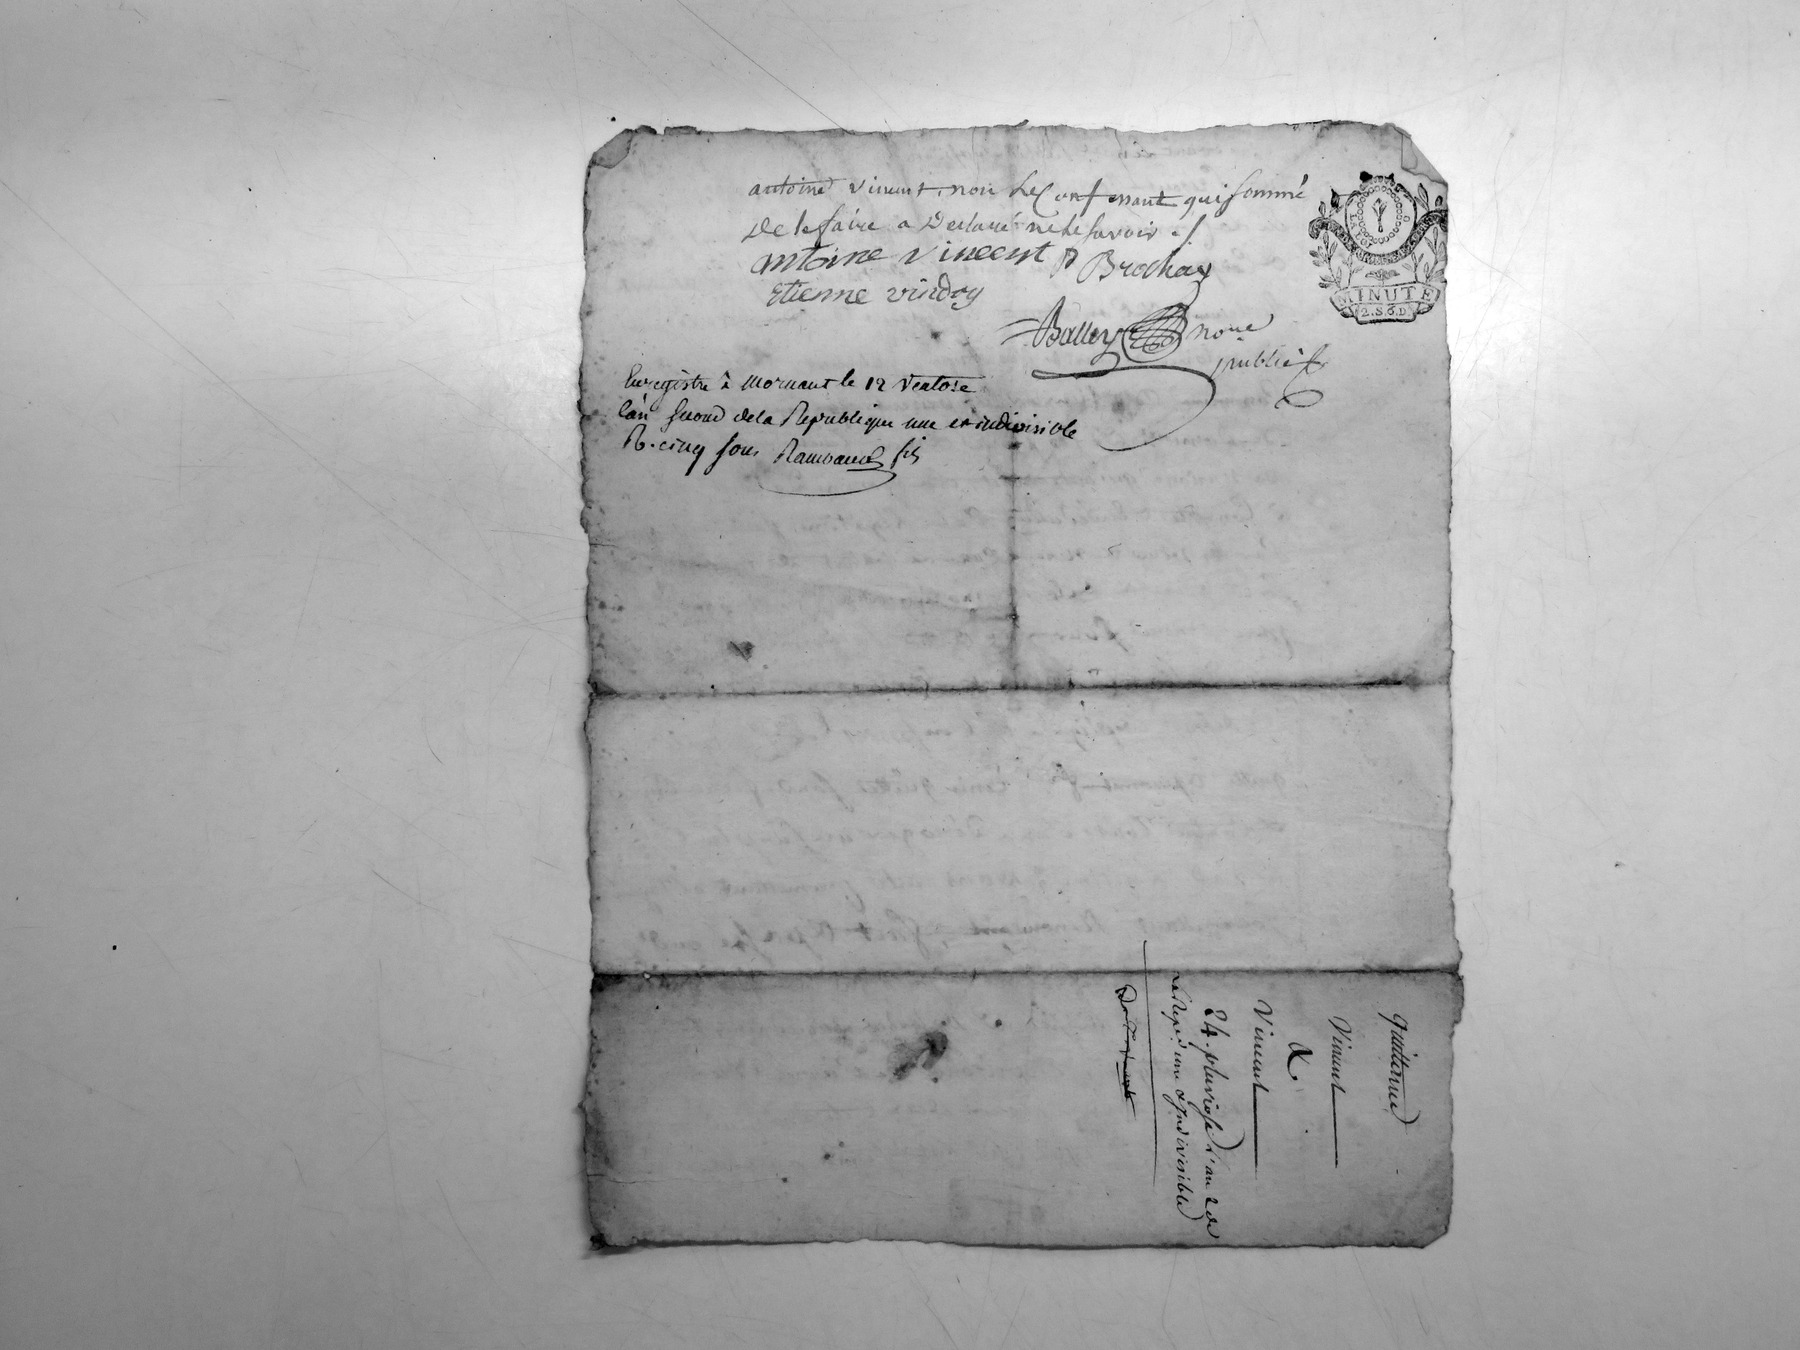 antoine vincent, non le Confessant qui sommé
de le faire a declaré ne le savoir ./.
antoine vincent P Brochay
Etienne vindry
Balley no.re
public
LA LOI
MINUTE
2.S 6.D
Enregistré à Mornant le 12 Ventose
l'an second de la Republique une et indivisible
R. cinq sous Rambaud fils
quittance
Vincent
&
Vincent
24. pluviose l'an 2 de
la Rep. une & indivisible